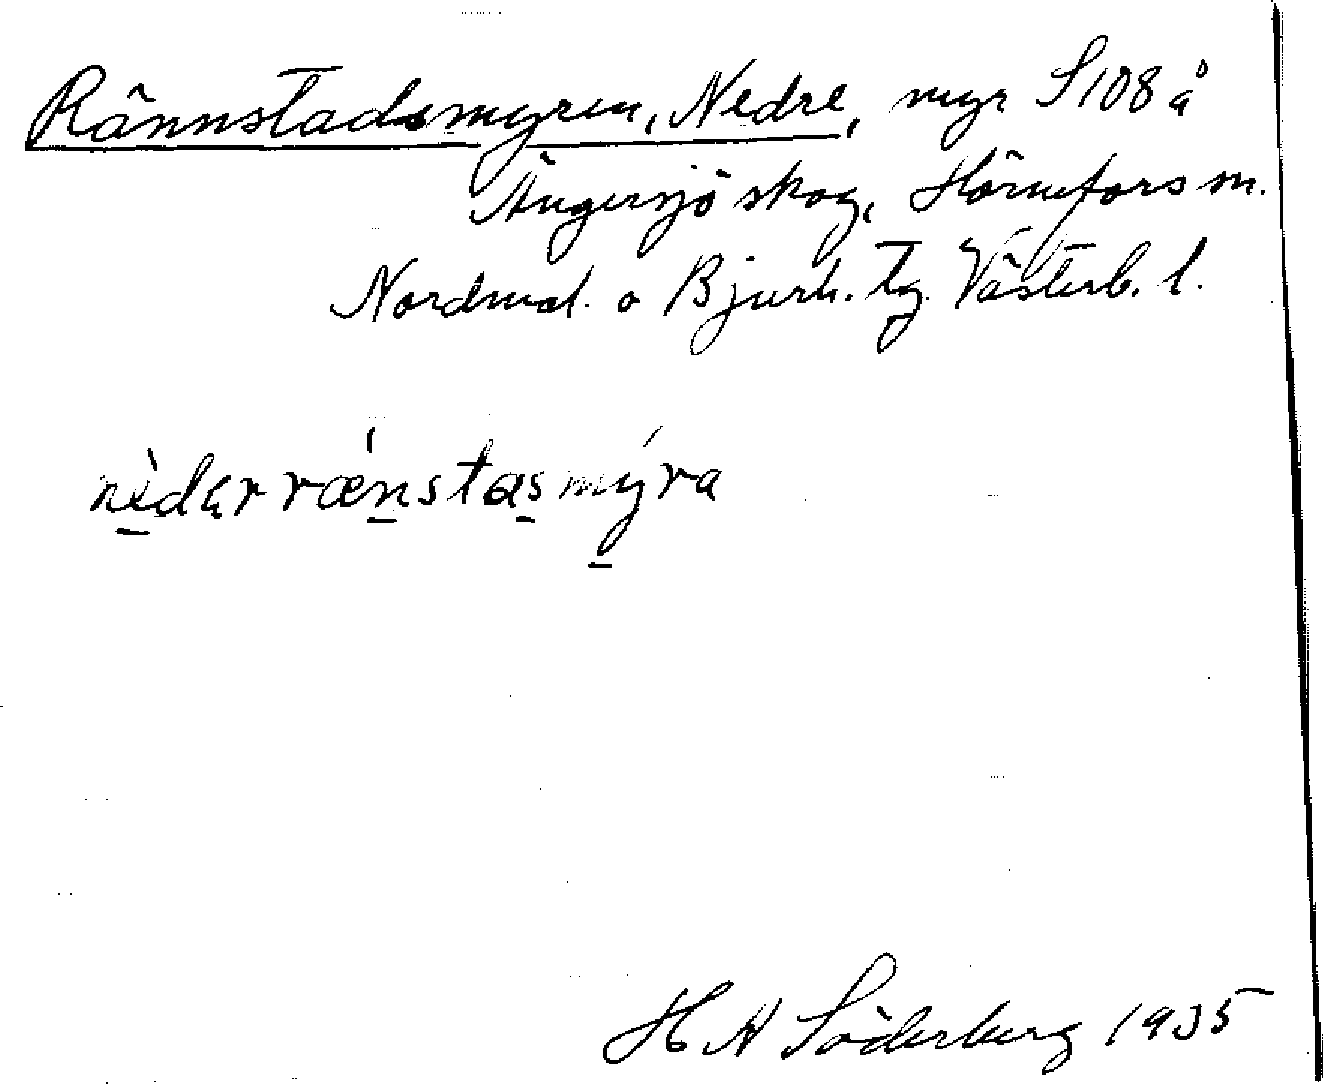 Rännstadsmyren, Nedre, myr S108 å
Ängersjö skog, Hörnefors sn.
Nordmal. o Bjurh. tg. Västerb. l.
nèdɑrrǽnstasmýra
H A Söderberg 1935